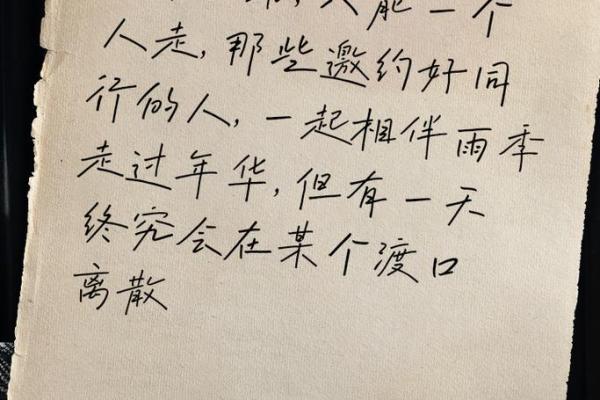 只能一个
人走,那些邀约好同
行的人,一起相伴雨季
走过年华,但有一天
终究会在某个渡口
离散